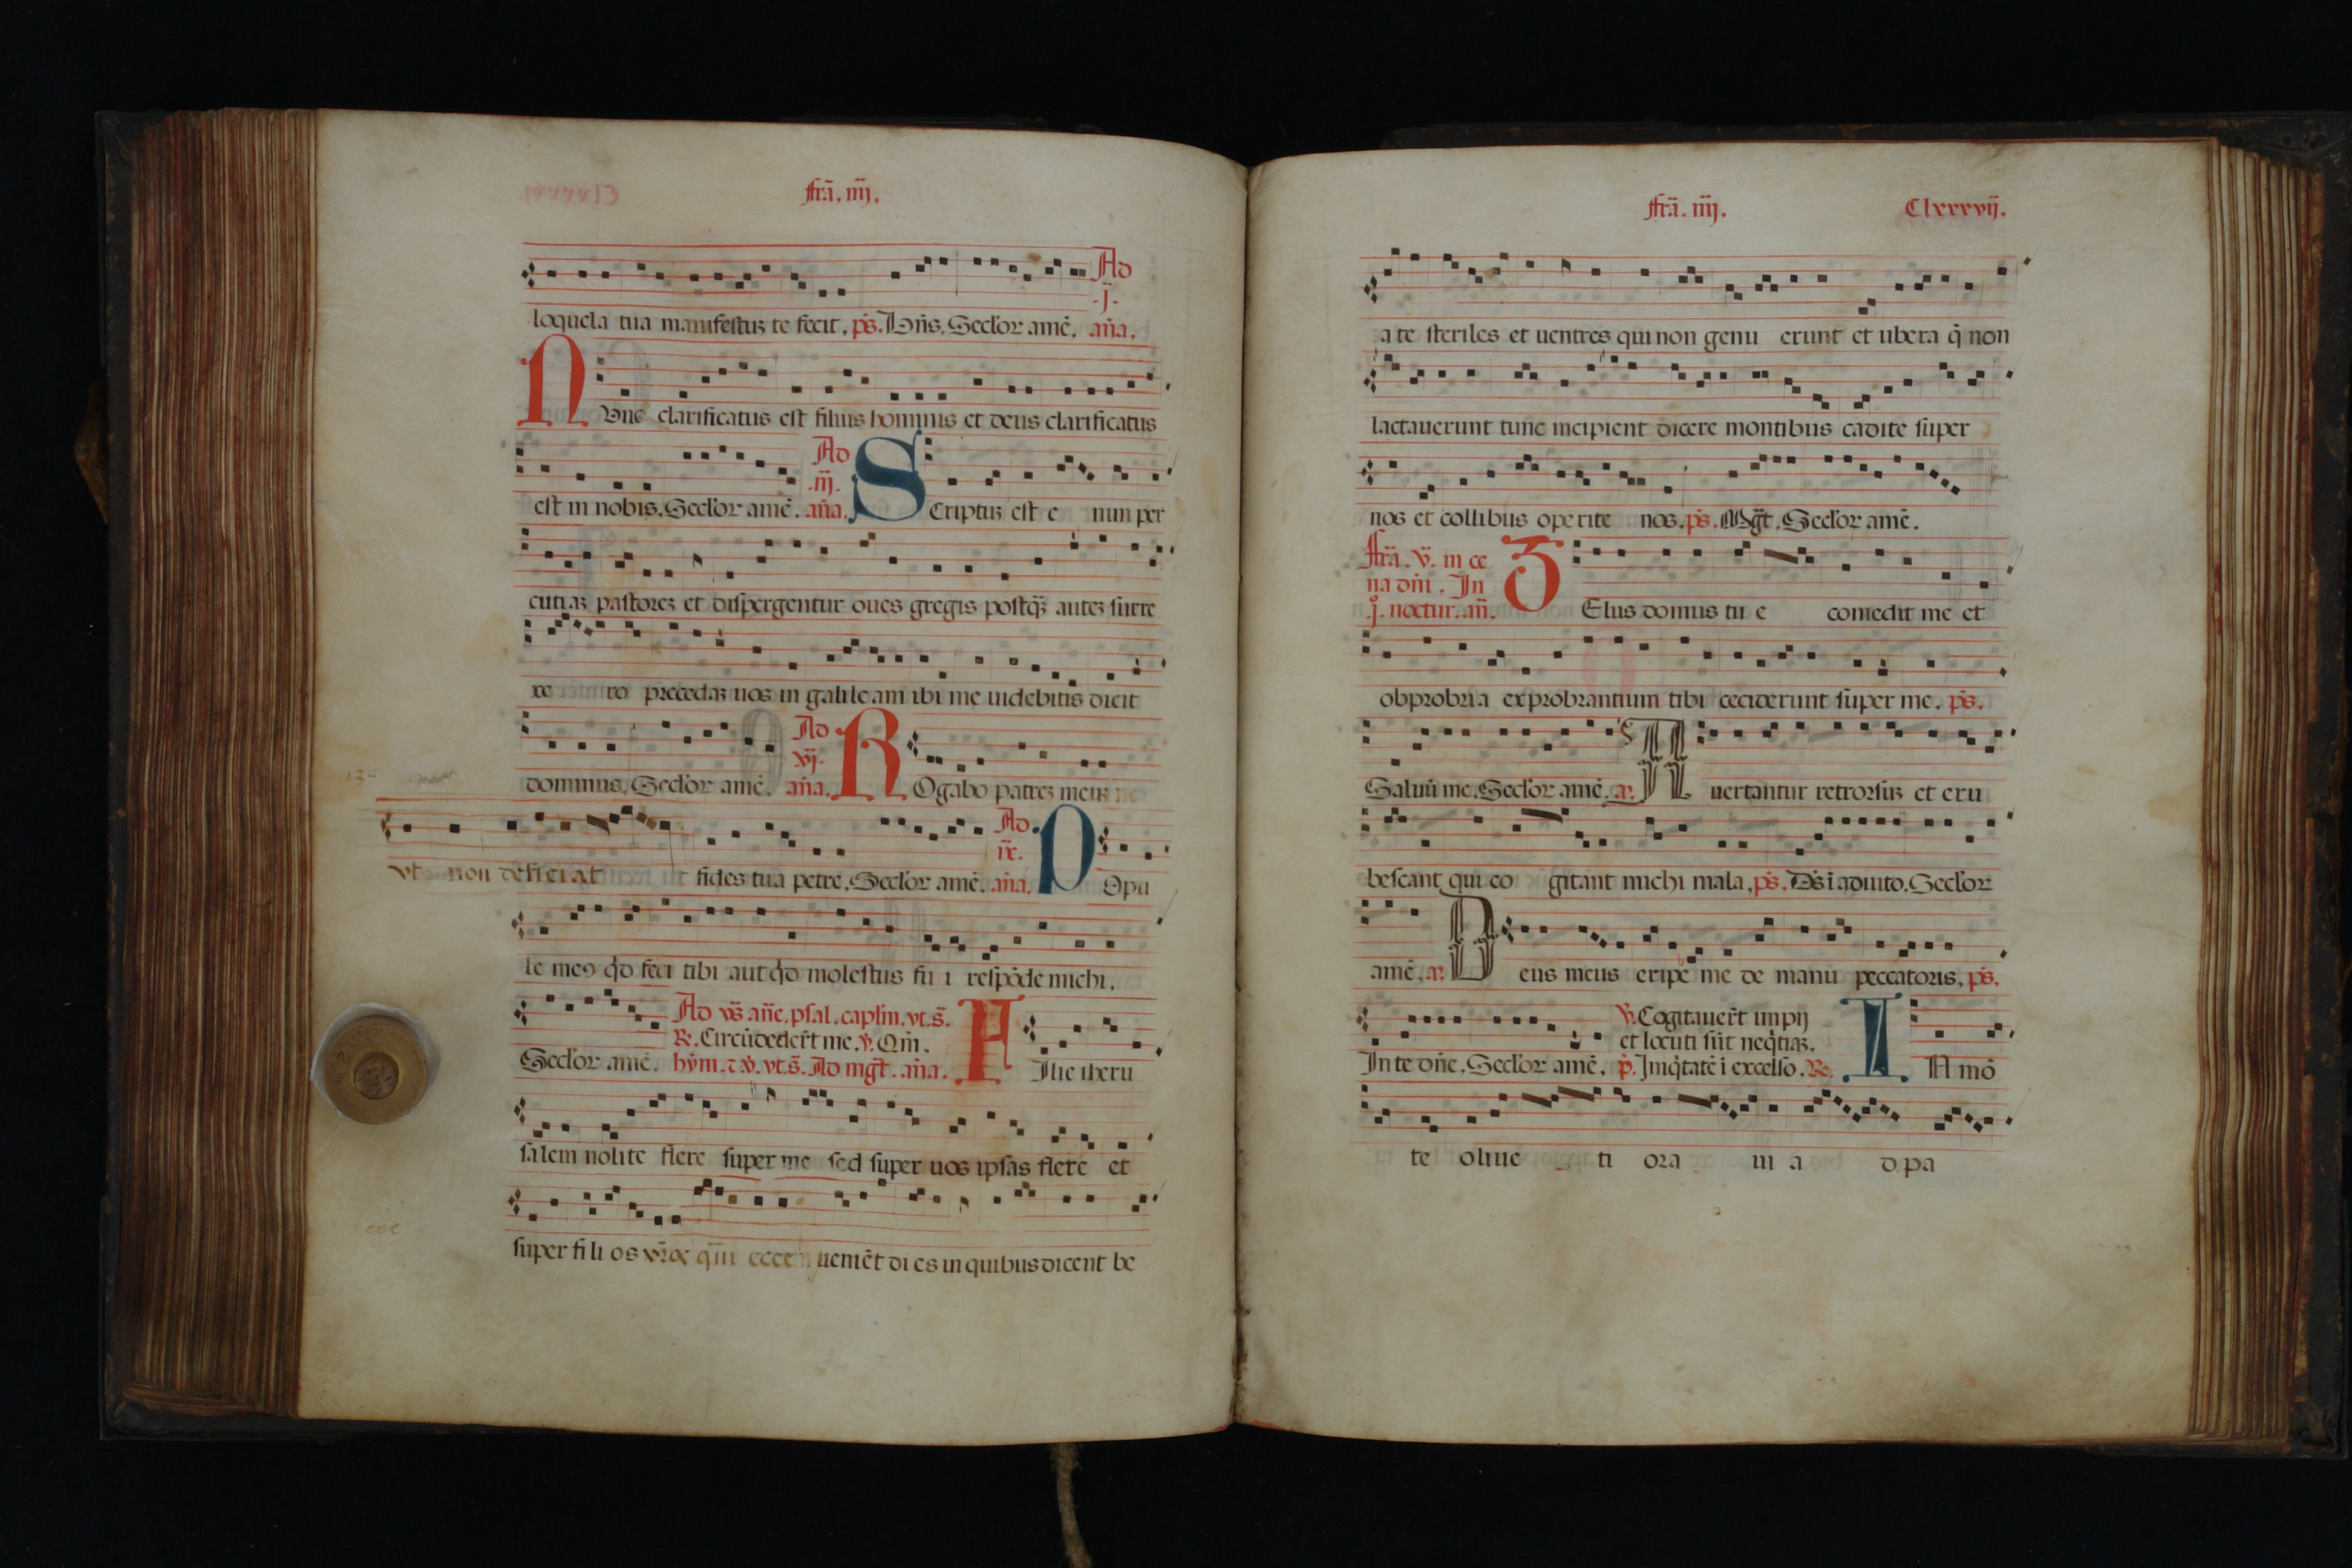 fr̄a. iiij.
loquela tua manifestuȝ te fecit. ps. Dn̄s. Seclor amē. an̄a. Ad .j.
Nunc clarificatus est filius hominis et deus clarificatus
est in nobis. Seclor amē. Ad .iij. an̄a. Scriptuȝ est e nim per
cutiaȝ pastoreȝ et dispergentur oues gregis postqȝ̄ auteȝ surre
xe ro precedaȝ uos in galileam ibi me uidebitis dicit
dominus. Seclor amē. Ad vj. an̄a. Rogabo patreȝ meuȝ
vt non deficiat fides tua petre. Seclor amē. Ad ix. an̄a. Popu
le meꝯ qd̄ feci tibi aut qd̄ molestus fu i respōde michi.
Ad vs̄ an̄e. psal. caplm̄. vt. s̄.
R̄. Circūdeder̄t me. v̄. Qm̄.
Seclor amē. hȳm. ⁊ v̄. vt s̄. Ad mgt̄. an̄a. Filie iheru
salem nolite flere super me sed super uos ipsas flete et
super fili os vr̄ōs qm̄ ecce ueniēt di es in quibus dicent be
fr̄a. iiij. Clxxxvij.
a te steriles et uentres qui non genu erunt et ubera q̄ non
lactauerunt tunc incipient dicere montibus cadite super
nos et collibus operite nos. ps. Mgt̄. Seclor amē.
fr̄a. v̄. in ce
na dn̄i. In
j. noctur. an̄. Zelus domus tu e comedit me et
obprobria exprobrantium tibi ceciderunt super me. ps.
Saluū me. Seclor amē. a. Auertantur retrorsuȝ et eru
bescant qui co gitant michi mala. ps. Ds̄ ī adiuto. Seclor
amē. a. Deus meus eripe me de manu peccatoris. ps.
v̄. Cogitauer̄t impij
et locuti sūt neq̄tiaȝ.
In te dn̄e. Seclor amē. p̄. Iniq̄tatē ī excelso. R̄. IN mō
te oliue ti ora ui a d pa